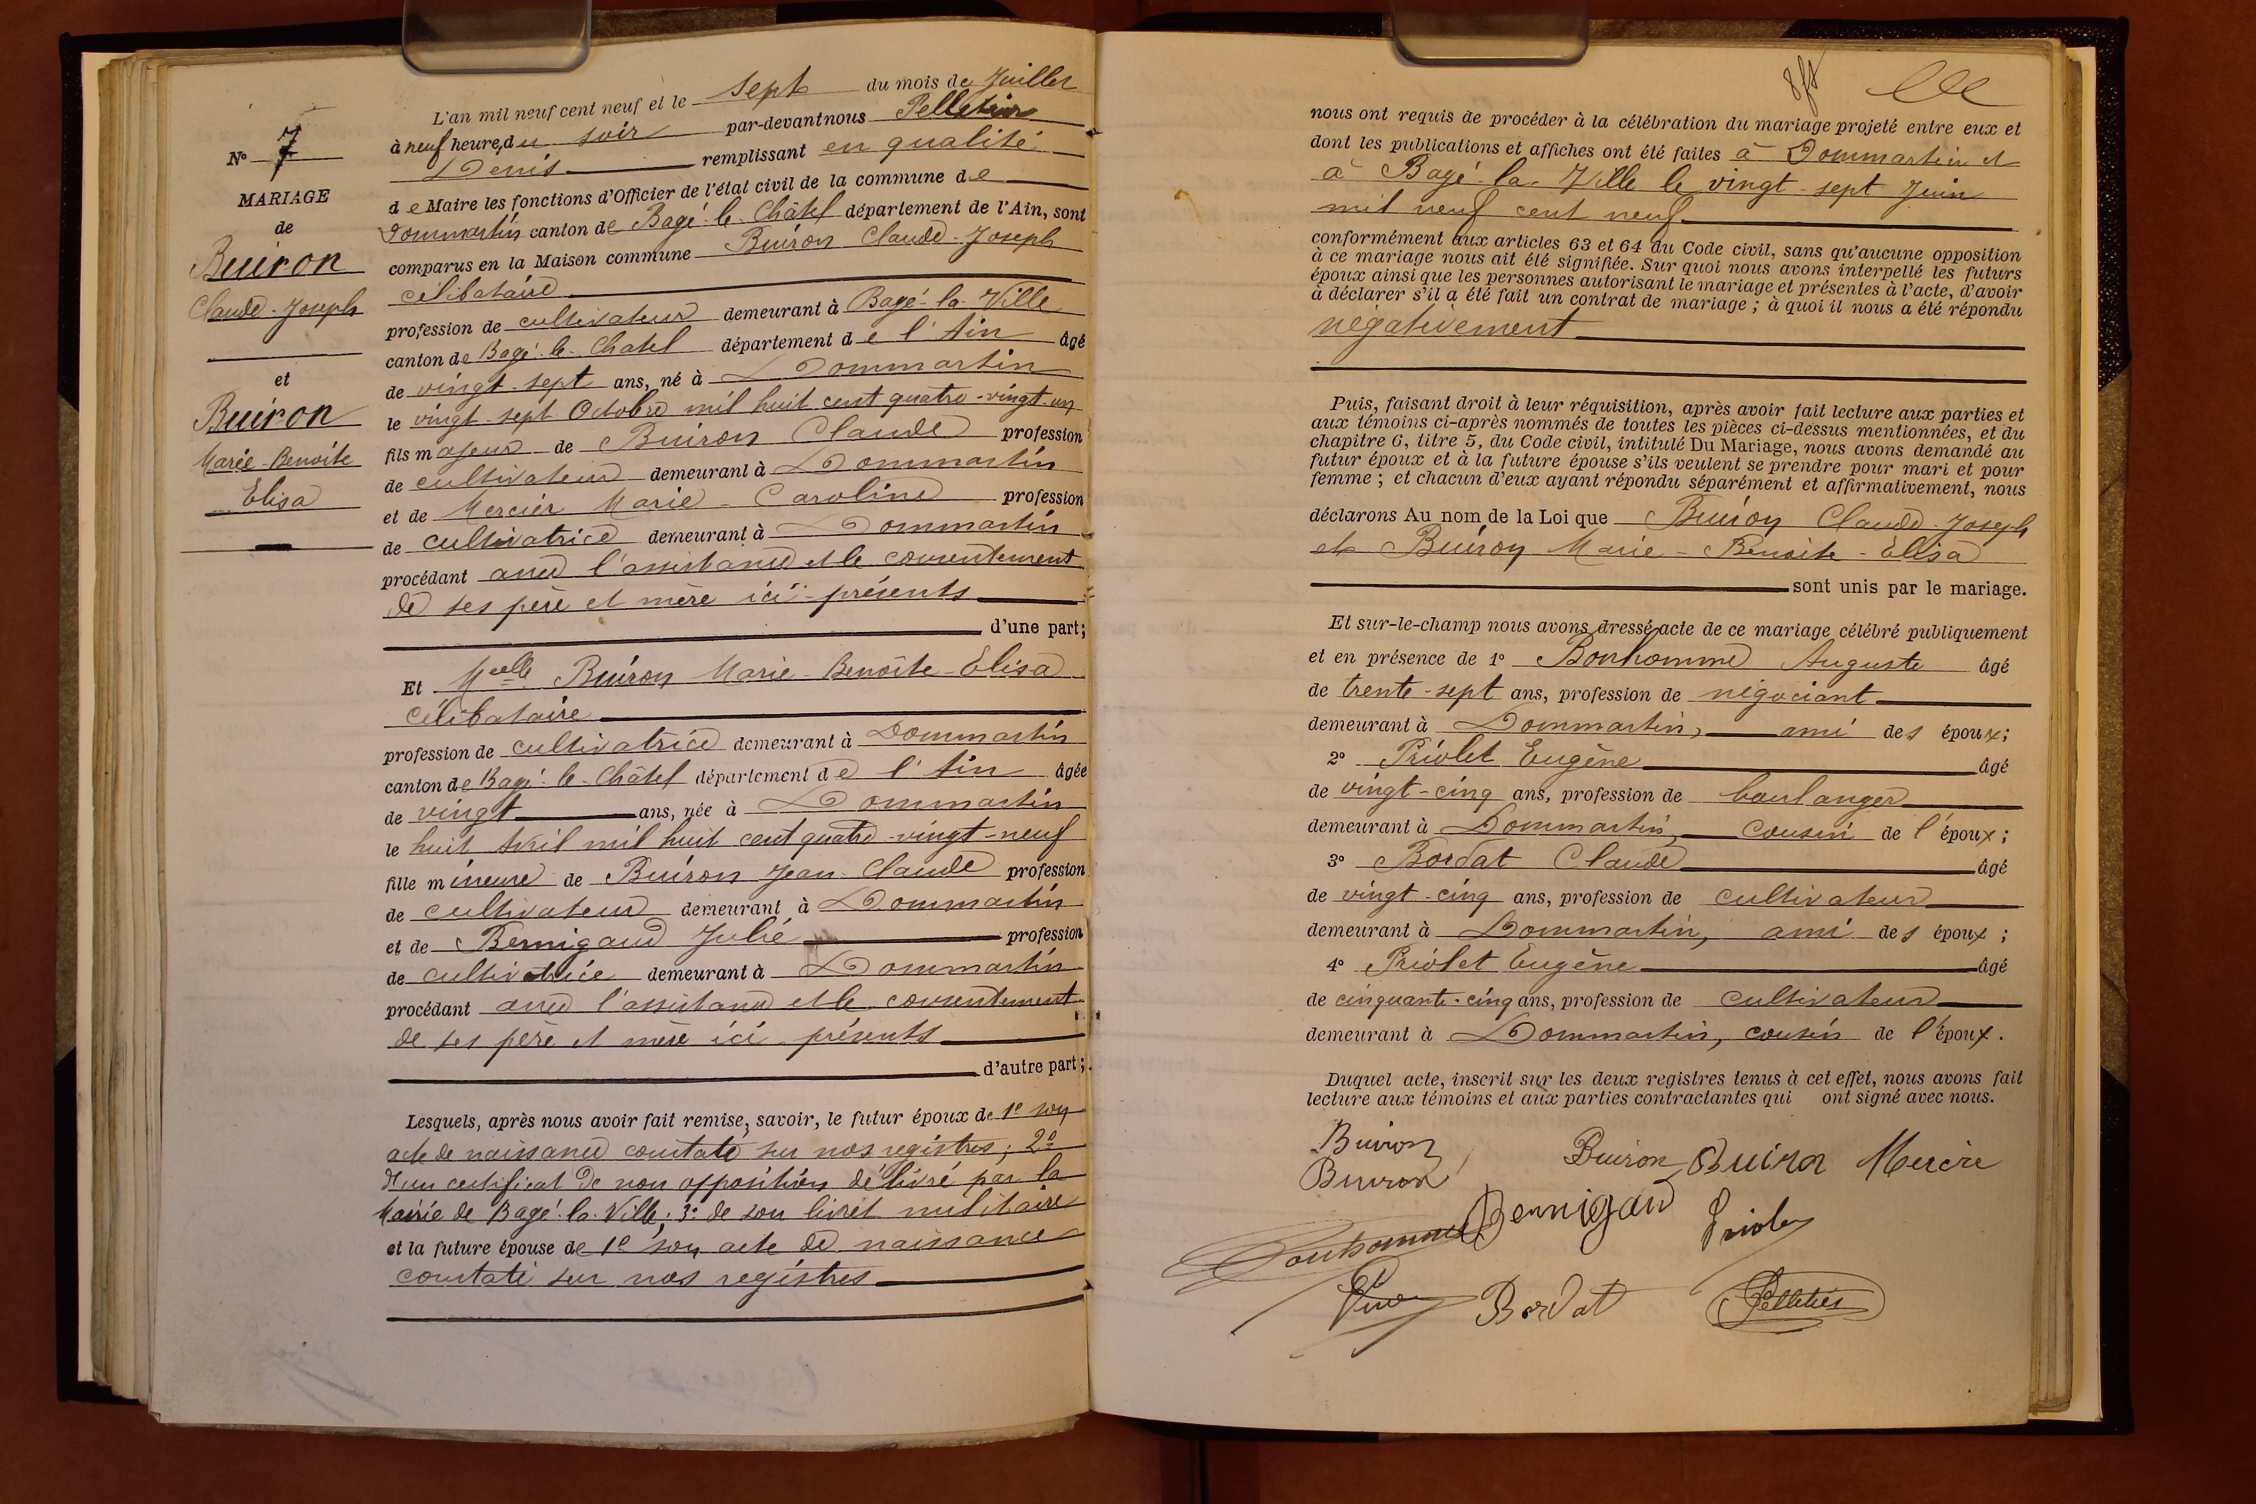 N° 7
MARIAGE
de
Buiron
Claude-Joseph
et
Buiron
Marie-Benoite
Elisa
L'an mil neuf cent neuf et le sept du mois de Juillet
à neuf heure, du soir par-devant nous Pelletier
Denis remplissant en qualité
de Maire les fonctions d'Officier de l'état civil de la commune de
Dommartin canton de Bagé-le-Châtel département de l'Ain, sont
comparus en la Maison commune Buiron Claude-Joseph
célibataire
profession de cultivateur demeurant à Bagé-la-Ville
canton de Bagé-le-Chatel département de l'Ain âgé
de vingt-sept ans, né à Dommartin
le vingt-sept Octobre mil huit cent quatre-vingt-un
fils majeur de Buiron Claude profession
de cultivateur demeurant à Dommartin
et de Mercier Marie-Caroline profession
de cultivatrice demeurant à Dommartin
procédant avec l'assistance et le consentement
de ses père et mère ici-présents
d'une part;
Et Melle Buiron Marie-Benoîte-Elisa
célibataire
profession de cultivatrice demeurant à Dommartin
canton de Bagé-le-Châtel département de l'Ain âgée
de vingt ans, née à Dommartin
le huit Avril mil huit cent quatre-vingt-neuf
fille mineure de Buiron Jean-Claude profession
de cultivateur demeurant à Dommartin
et de Bernigaud Julie profession
de cultivatrice demeurant à Dommartin
procédant avec l'assistance et le consentement
de ses père et mère ici présents
d'autre part;
Lesquels, après nous avoir fait remise, savoir, le futur époux de 1° son
acte de naissance constaté sur nos registres; 2°
d'un certificat de non opposition délivré par la
Mairie de Bagé-la-Ville; 3° de son livret militaire
et la future épouse de 1° son acte de naissance
constaté sur nos registres
nous ont requis de procéder à la célébration du mariage projeté entre eux et
dont les publications et affiches ont été faites à Dommartin et
à Bagé-la-Ville le vingt-sept Juin
mil neuf cent neuf
conformément aux articles 63 et 64 du Code civil, sans qu'aucune opposition
à ce mariage nous ait été signifiée. Sur quoi nous avons interpellé les futurs
époux ainsi que les personnes autorisant le mariage et présentes à l'acte, d'avoir
à déclarer s'il a été fait un contrat de mariage; à quoi il nous a été répondu
négativement
Puis, faisant droit à leur réquisition, après avoir fait lecture aux parties et
aux témoins ci-après nommés de toutes les pièces ci-dessus mentionnées, et du
chapitre 6, titre 5, du Code civil, intitulé Du Mariage, nous avons demandé au
futur époux et à la future épouse s'ils veulent se prendre pour mari et pour
femme; et chacun d'eux ayant répondu séparément et affirmativement, nous
déclarons Au nom de la Loi que Buiron Claude-Joseph
et Buiron Marie-Benoite-Elisa
sont unis par le mariage.
Et sur-le-champ nous avons dressé acte de ce mariage célébré publiquement
et en présence de 1° Bonhomme Auguste âgé
de trente-sept ans, profession de négociant
demeurant à Dommartin, ami des époux;
2° Priolet Eugène âgé
de vingt-cinq ans, profession de boulanger
demeurant à Dommartin, cousin de l'époux;
3° Bordat Claude âgé
de vingt-cinq ans, profession de cultivateur
demeurant à Dommartin, ami des époux;
4° Priolet Eugène âgé
de cinquante-cinq ans, profession de cultivateur
demeurant à Dommartin, cousin de l'époux.
Duquel acte, inscrit sur les deux registres tenus à cet effet, nous avons fait
lecture aux témoins et aux parties contractantes qui ont signé avec nous.
Buiron Buiron Buiron Mercie
Buiron
Bernigaud
Bonhomme Priolet
Bordat Pelletier